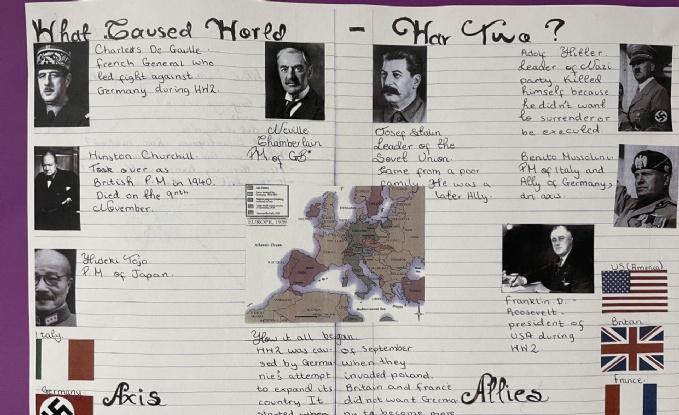 What Caused World - War Two?
Charles De Gaulle.
french General who
led fight against
Germany during WW2.
Neville
Chamberlain
PM of GB*
Josef Stalin
Leader of the
Sovet Union.
Came from a poor
family. He was a
later Ally.
Adolf Hitler.
Leader of Nazi
party. Killed
himself because
he didn't want
to surrender or
be executed
Winston Churchill.
Took over as
British P.M in 1940.
Died on the 9nth
November.
Benito Mussolini.
PM of Italy and
Ally of Germany,
an axis.
Hideki Tojo.
P.M of Japan.
EUROPE, 1939
Atlantic Ocean
Franklin D. -
Roosevelt -
president of
USA during
WW2.
US (America)
Britan
France
Italy
Germany
Axis
Allies
How it all began
WW2 was cau-
sed by Germa-
nie's attempt
to expand its
country. It
started when
of September
when they
invaded poland.
Britain and france
did not want Germa-
ny to become more